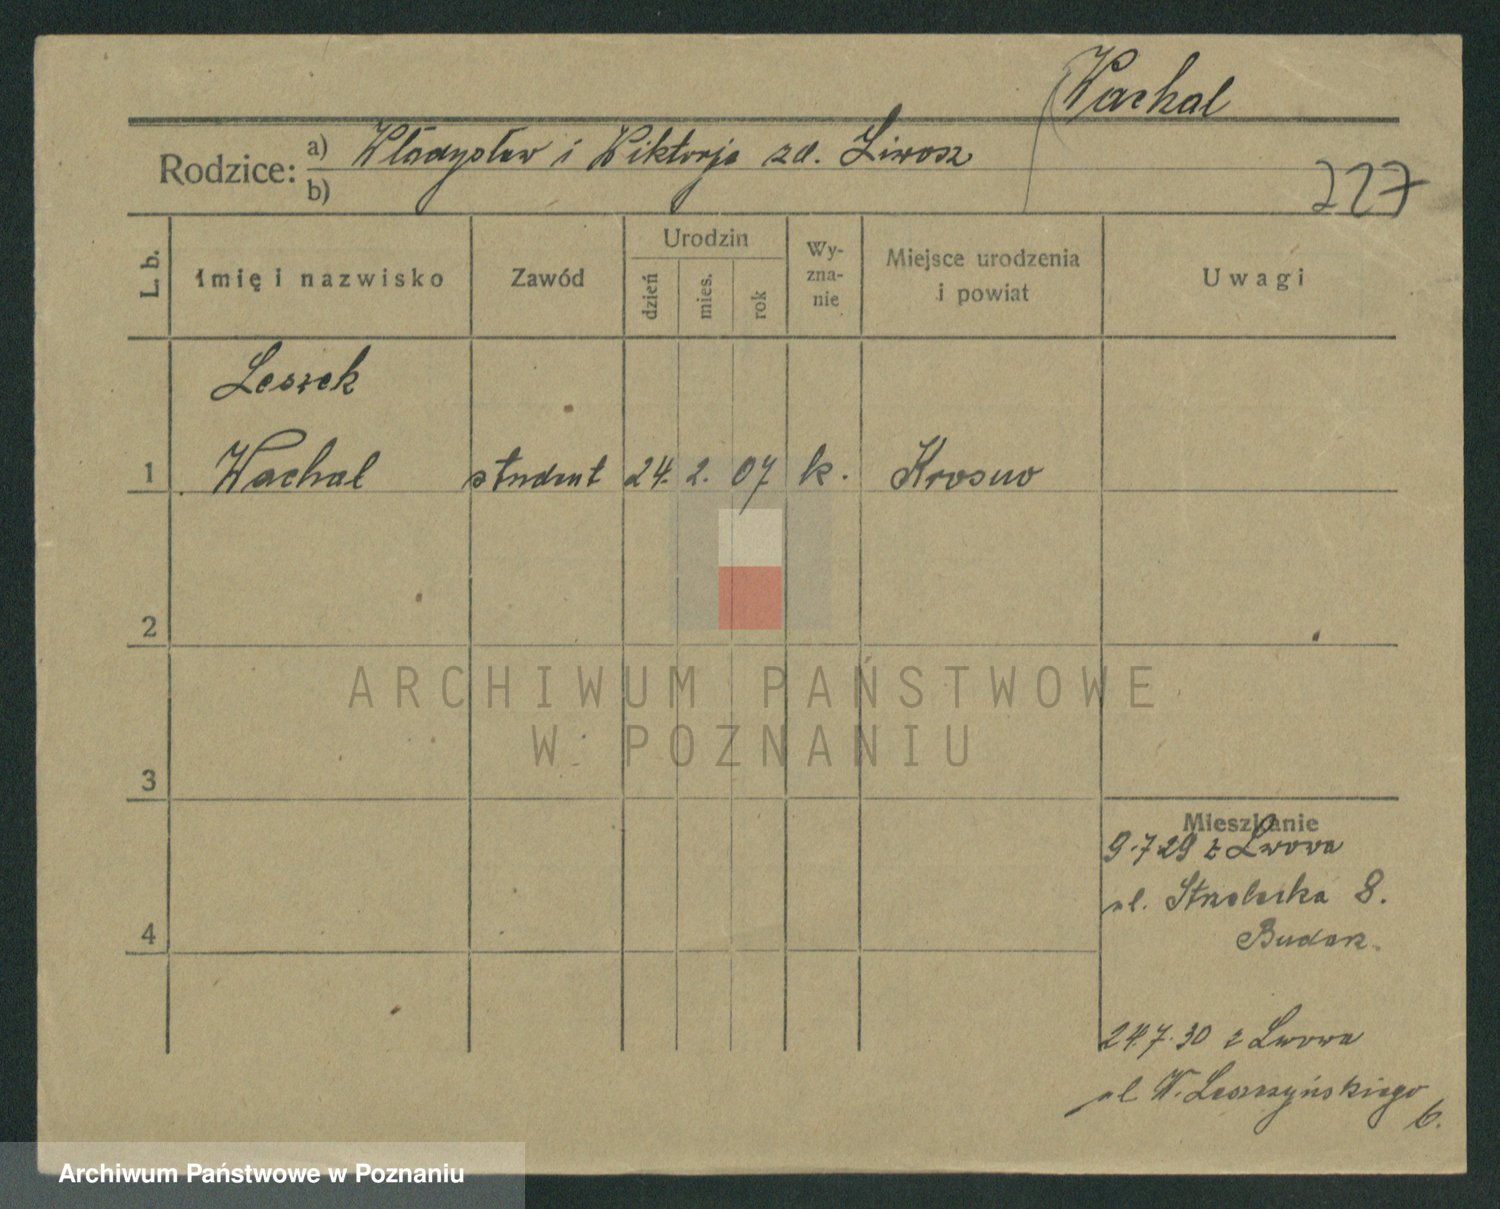 Wachal
Rodzice: a) Władysław i Wiktorja zd. Liwosz
b)
227
L. b.
Imię i nazwisko
Zawód
Urodzin
dzień
mies.
rok
Wy-
zna-
nie
Miejsce urodzenia
i powiat
Uwagi
Leszek
1 Wachal student 24. 2. 07 k. Krosno
2
3
4
Mieszkanie
9.7.29 z Lwowa
ul. Strzelecka 8.
24.7.30 z Lwowa
ul W. Leszczyńskiego
6.
ARCHIWUM PAŃSTWOWE
W POZNANIU
Archiwum Państwowe w Poznaniu